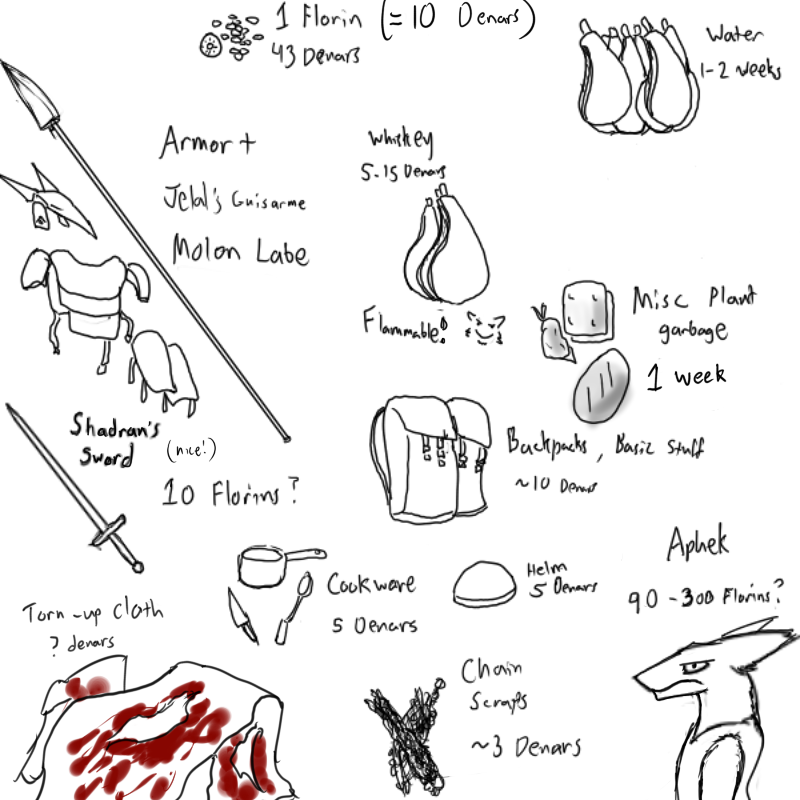 1 Florin (= 10 Denars)
43 Denars
Water
1-2 weeks
Armor +
Jelal's Guisarme
Molon Labe
Whiskey
5-15 Denars
Flammable!
Misc Plant
garbage
1 week
Shadran's
Sword
(nice!)
10 Florins?
Backpacks, Basic Stuff
~10 Denars
Cookware
5 Denars
Helm
5 Denars
Aphek
90-300 Florins?
Torn-up cloth
? denars
Chain
Scraps
~3 Denars